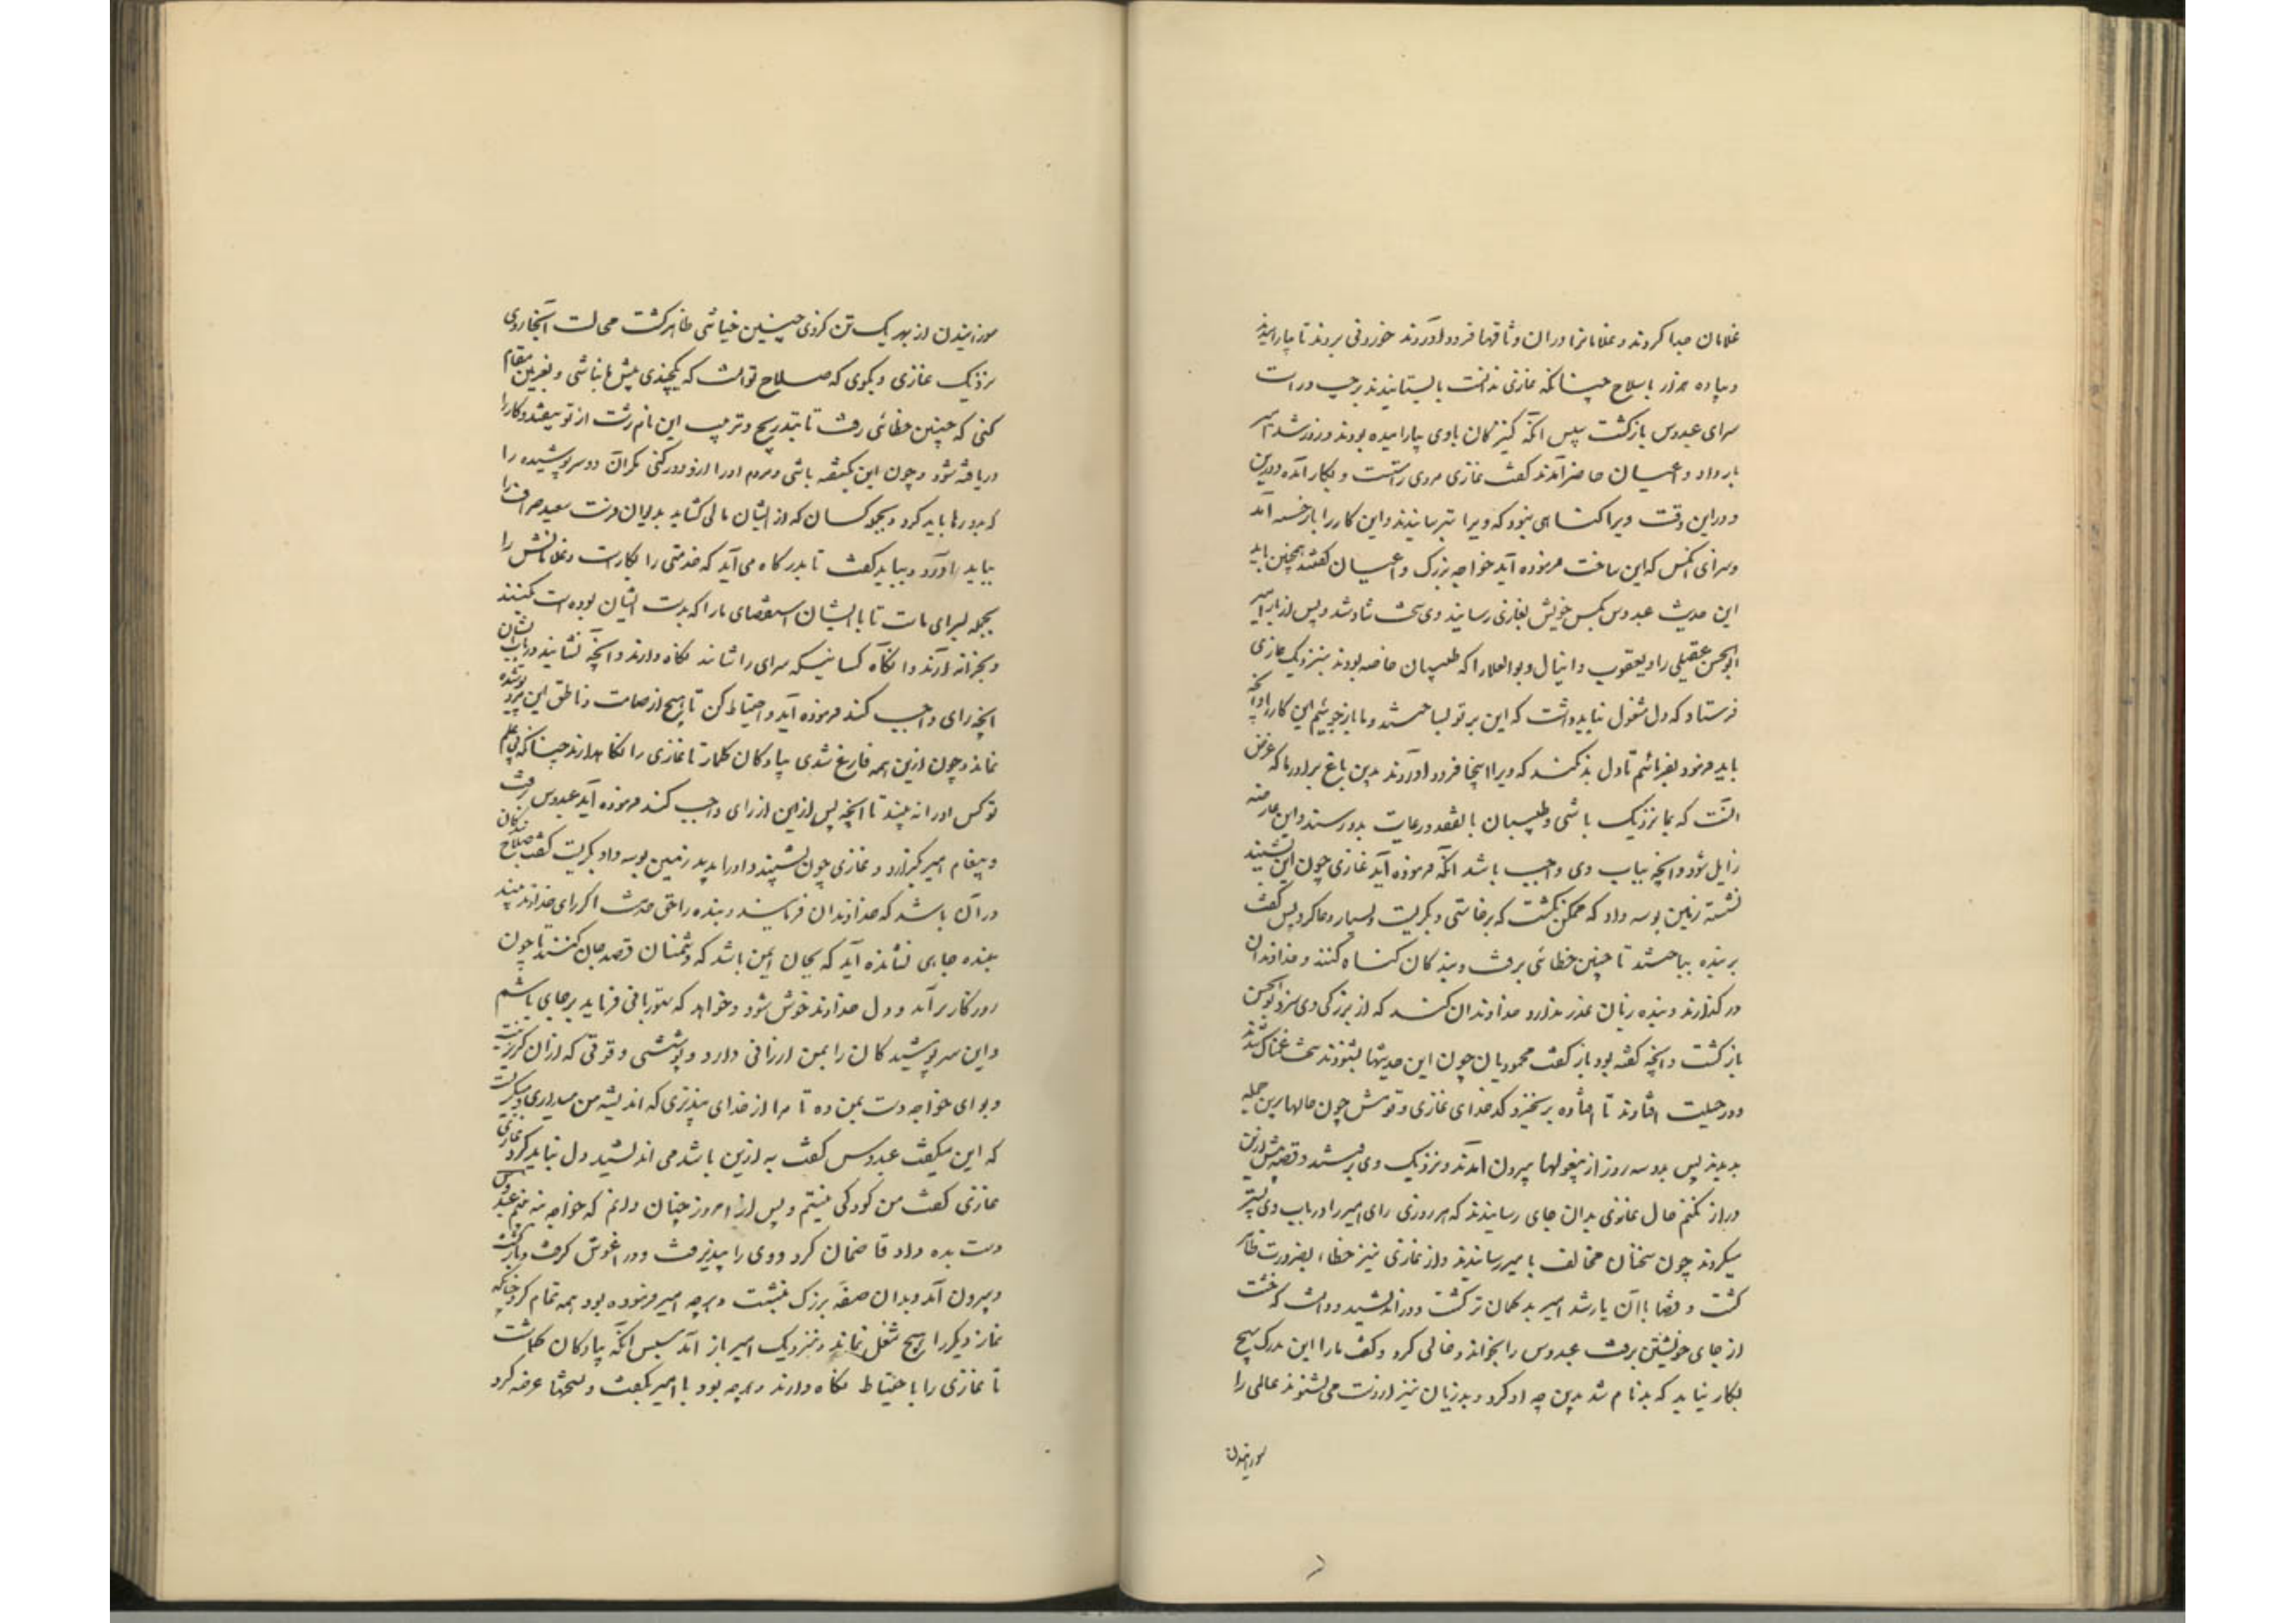 غلامان جدا کردند و غلامانرا دران وثاقها فرود آوردند خوردنی بردند تا بیارامیدند
و پیاده هزار باسلاح چنانکه غازی ندانست بایستانیدند بر چپ و راست
سرای عبدوس بازگشت سپس آنکه کنیزکان باوی بیارامیده بودند و روز شد امیر
بار داد و اعیان حاضر آمدند گفت غازی مردی راست است و بکار آمده و درین
و دراین وقت ویرا گناهی نبود که ویرا بترسانیدند واین کار را باز جسته آید
وسزای آنکس که این ساخت فرموده آید خواجه بزرک و اعیان گفتند همچنین باید
این حدیث عبدوس بکس خویش بغازی رسانید وی سخت شاد شد و پس از بار امیر
ابوالحسن عقیلی را و یعقوب دانیال و بوالعلا را که طبیبان خاصه بودند بنزدیک غازی
فرستاد که دل مشغول نباید داشت که این بر تو بساختند و ما باز جوییم این کار را و آنچه
باید فرمود بفرمائیم تا دل بد نکند که ویرا اینجا فرود آوردند بدین باغ برادر ما که غرض
آنست که بما نزدیک باشی و طبیبان با تفقد و رعایت بدو رسند و این عارضه
زایل شود و آنچه بباب وی واجب باشد آنکه فرموده آید غازی چون این بشنید
نشسته زمین بوسه داد که ممکن نگشت که برخاستی و بگریست و بسیار دعا کرد پس گفت
بر بنده بساختند تا چنین خطائی برفت و بندگان گناه کنند و خداوندان
در گذارند و بنده زبان عذر ندارد خداوندان کند که از بزرگی وی سزد بوالحسن
بازگشت و آنچه گفته بود باز گفت محمودیان چون این حدیثها بشنودند سخت غمناک شدند
و در حیلت افتادند تا افتاده برنخیزد کدخدای غازی و قومش چون حالها برین جمله
بدیدند پس بدو سه روز از بیغولها بیرون آمدند و نزدیک وی برفتند و قصه بیش ازین
دراز نکنم حال غازی بدان جای رسانیدند که هر روزی رای امیر را در باب وی بتر
میکردند چون سخنان مخالف با میر رسانیدند و از غازی نیز خطاء بضرورت ظاهر
گشت و قضا باآن یار شد امیر بدگمان تر گشت و دور اندیشید و دانست که خشت
از جای خویشتن برفت عبدوس را بخواند و خالی کرد و گفت مارا این بدرک هیچ
بکار نیاید که بدنام شد بدین چه او کرد و پدریان نیز از دست می نشوند عالمی را
شورانیدن
شورانیدن از بهر یک تن کزوی چنین خیانتی ظاهر گشت محالست آنجا روی
نزدیک غازی و بکوی که صلاح تو آنست که یکچندی پیش ما نباشی و بغزنین مقام
کنی که چنین خطائی رفت تا بتدریج و ترتیب این نام زشت از تو بیفتد و کار را
دریافته شود و چون این بگفته باشی مردم او را ازو دور کنی مگر آن دو سرپوشیده را
که بدو رها باید کرد و بجمله کسان که از ایشان مالی گشاید بدیوان فرست سعید صراف را
بباید آورد و بباید گفت تا بدرگاه می آید که خدمتی را بکار است و غلامانش را
بجمله بسرای ماست تا با ایشان استقصای ما را که بدست ایشان بوده است بکنند
و بخزانه آرند و آنگاه کسانیکه سرای را شایند نگاه دارند و آنچه نشایند در باب ایشان
آنچه رای واجب کند فرموده آید و احتیاط کن تا هیچ از صامت و ناطق این مرد پوشیده
نماند و چون ازین همه فارغ شدی پیادگان گمار تا غازی را نگاهدارند چنانکه بی علم
تو کس او را نه بیند تا آنچه پس ازین از رای واجب کند فرموده آید عبدوس برفت
و پیغام امیر بگزارد و غازی چون بشنید و او را بدید زمین بوسه داد و بگریست گفت صلاح بندگان
در آن باشد که خداوندان فرمایند و بنده را حق خدمت اگر رای خداوند بیند
بنده جایی نشانده آید که بجان ایمن باشد که دشمنان قصد جان کنند تا چون
روزگار برآید و دل خداوند خوش شود و خواهد که ستوربانی فرماید بر جای باشم
و این سرپوشیدگان را بمن ارزانی دارد و پوششی و قوتی که از آن گریز نیست
و تو ای خواجه دست بمن ده تا مرا از خدای بپذیری که اندیشه من میداری و میگریست
که این میگفت عبدوس گفت به ازین باشد می اندیشید دل نباید کرد غازی
غازی گفت من کودکی نیستم و پس از امروز چنان دانم که خواجه نه بینم عبدوس
دست بده داد قا ضمان کرد و وی را پذیرفت و در آغوش گرفت و بازگشت
و بیرون آمد و بدان صفه بزرک بنشست و هر چه امیر فرموده بود همه تمام کرد چنانکه
نماز دیگر را هیچ شغل نماند و بنزدیک امیر باز آمد سپس آنکه پیادگان گماشت
تا غازی را با حتیاط نگاه دارند و هر چه بود با امیر بگفت و نسختها عرضه کرد